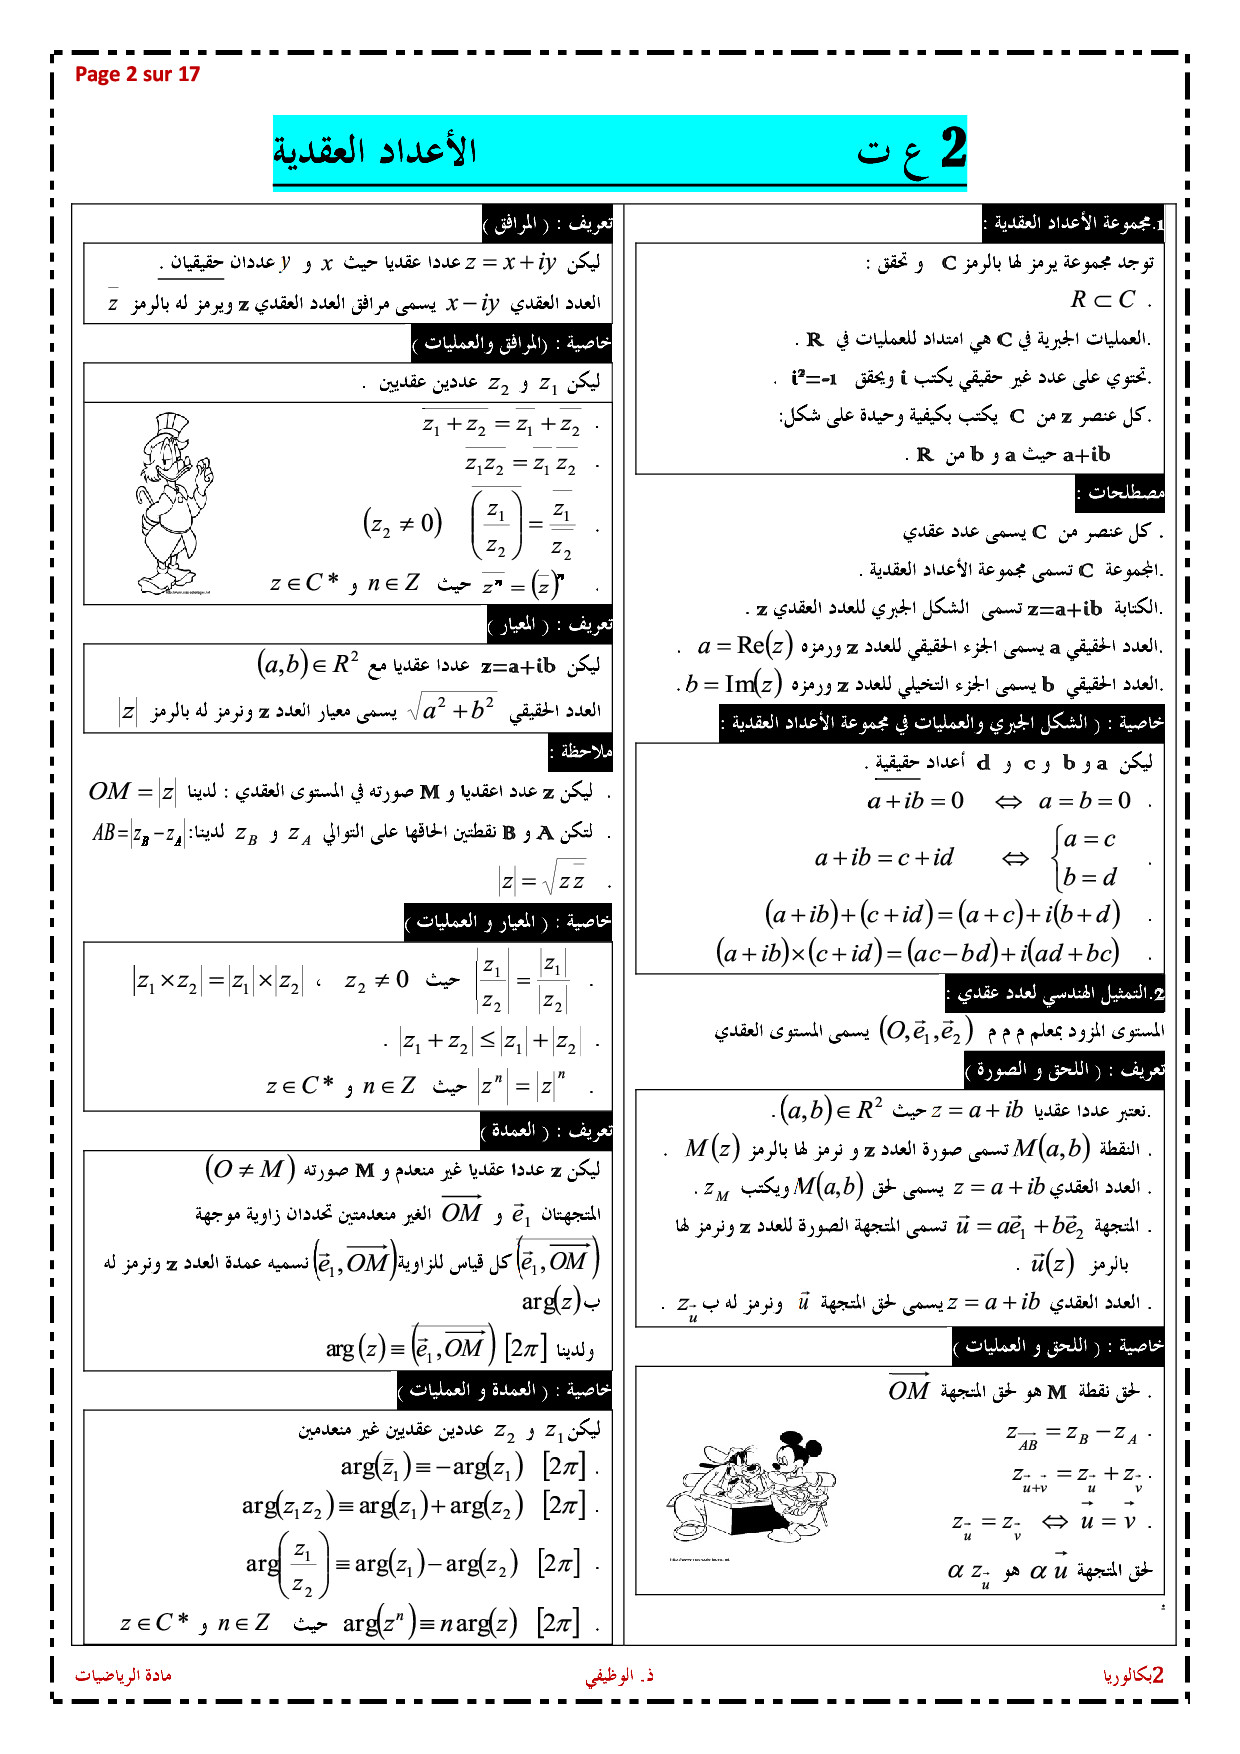 Page 2 sur 17
2 ع ت الأعداد العقدية
1.مجموعة الأعداد العقدية :
توجد مجموعة يرمز لها بالرمز C و تحقق :
. R ⊂ C
.العمليات الجبرية في C هي امتداد للعمليات في R .
.تحتوي على عدد غير حقيقي يكتب i ويحقق i²=-1 .
.كل عنصر z من C يكتب بكيفية وحيدة على شكل:
a+ib حيث a و b من R .
مصطلحات :
. كل عنصر من C يسمى عدد عقدي
.المجموعة C تسمى مجموعة الأعداد العقدية .
.الكتابة z=a+ib تسمى الشكل الجبري للعدد العقدي z .
.العدد الحقيقي a يسمى الجزء الحقيقي للعدد z ورمزه a = Re(z) .
.العدد الحقيقي b يسمى الجزء التخيلي للعدد z ورمزه b = Im(z) .
خاصية : ( الشكل الجبري والعمليات في مجموعة الأعداد العقدية :
ليكن a و b و c و d أعداد حقيقية .
. a + ib = 0 ⇔ a = b = 0
. a + ib = c + id ⇔ { a = c
b = d
. (a + ib) + (c + id) = (a + c) + i(b + d)
. (a + ib) × (c + id) = (ac − bd) + i(ad + bc)
2.التمثيل الهندسي لعدد عقدي :
المستوى المزود بمعلم م م م (O, e⃗₁, e⃗₂) يسمى المستوى العقدي
تعريف : ( اللحق و الصورة )
.نعتبر عددا عقديا z = a + ib حيث (a,b) ∈ R² .
. النقطة M(a,b) تسمى صورة العدد z و نرمز لها بالرمز M(z) .
. العدد العقدي z = a + ib يسمى لحق M(a,b) ويكتب z_M .
. المتجهة u⃗ = ae⃗₁ + be⃗₂ تسمى المتجهة الصورة للعدد z ونرمز لها
بالرمز u⃗(z) .
. العدد العقدي z = a + ib يسمى لحق المتجهة u⃗ ونرمز له ب z_u⃗ .
خاصية : ( اللحق و العمليات )
. لحق نقطة M هو لحق المتجهة OM⃗
. z_AB⃗ = z_B − z_A
. z_u⃗+v⃗ = z_u⃗ + z_v⃗
. z_u⃗ = z_v⃗ ⇔ u⃗ = v⃗
لحق المتجهة α u⃗ هو α z_u⃗
.
تعريف : ( المرافق )
ليكن z = x + iy عددا عقديا حيث x و y عددان حقيقيان .
العدد العقدي x − iy يسمى مرافق العدد العقدي z ويرمز له بالرمز z̅
خاصية : (المرافق والعمليات )
ليكن z₁ و z₂ عددين عقديين .
. \overline{z₁ + z₂} = \overline{z₁} + \overline{z₂}
. \overline{z₁z₂} = \overline{z₁} \overline{z₂}
. \overline{(z₁/z₂)} = \overline{z₁}/\overline{z₂} (z₂ ≠ 0)
. \overline{zⁿ} = (z̅)ⁿ حيث n ∈ Z و z ∈ C*
تعريف : ( المعيار )
ليكن z=a+ib عددا عقديا مع (a,b) ∈ R²
العدد الحقيقي √(a² + b²) يسمى معيار العدد z ونرمز له بالرمز |z|
ملاحظة :
. ليكن z عدد اعقديا و M صورته في المستوى العقدي : لدينا OM = |z|
. لتكن A و B نقطتين الحاقها على التوالي z_A و z_B لدينا: AB = |z_B − z_A|
. |z| = √(z z̅)
خاصية : ( المعيار و العمليات )
. |z₁/z₂| = |z₁|/|z₂| حيث z₂ ≠ 0 ، |z₁ × z₂| = |z₁| × |z₂|
. |z₁ + z₂| ≤ |z₁| + |z₂| .
. |zⁿ| = |z|ⁿ حيث n ∈ Z و z ∈ C*
تعريف : ( العمدة )
ليكن z عددا عقديا غير منعدم و M صورته (O ≠ M)
المتجهتان e⃗₁ و OM⃗ الغير منعدمتين تحددان زاوية موجهة
(e⃗₁, OM⃗) كل قياس للزاوية (e⃗₁, OM⃗) نسميه عمدة العدد z ونرمز له
ب arg(z)
ولدينا arg(z) ≡ (e⃗₁, OM⃗) [2π]
خاصية : ( العمدة و العمليات )
ليكن z₁ و z₂ عددين عقديين غير منعدمين
. arg(z̅₁) ≡ −arg(z₁) [2π]
. arg(z₁z₂) ≡ arg(z₁) + arg(z₂) [2π]
. arg(z₁/z₂) ≡ arg(z₁) − arg(z₂) [2π]
. arg(zⁿ) ≡ n arg(z) [2π] حيث n ∈ Z و z ∈ C*
2بكالوريا ذ. الوظيفي مادة الرياضيات